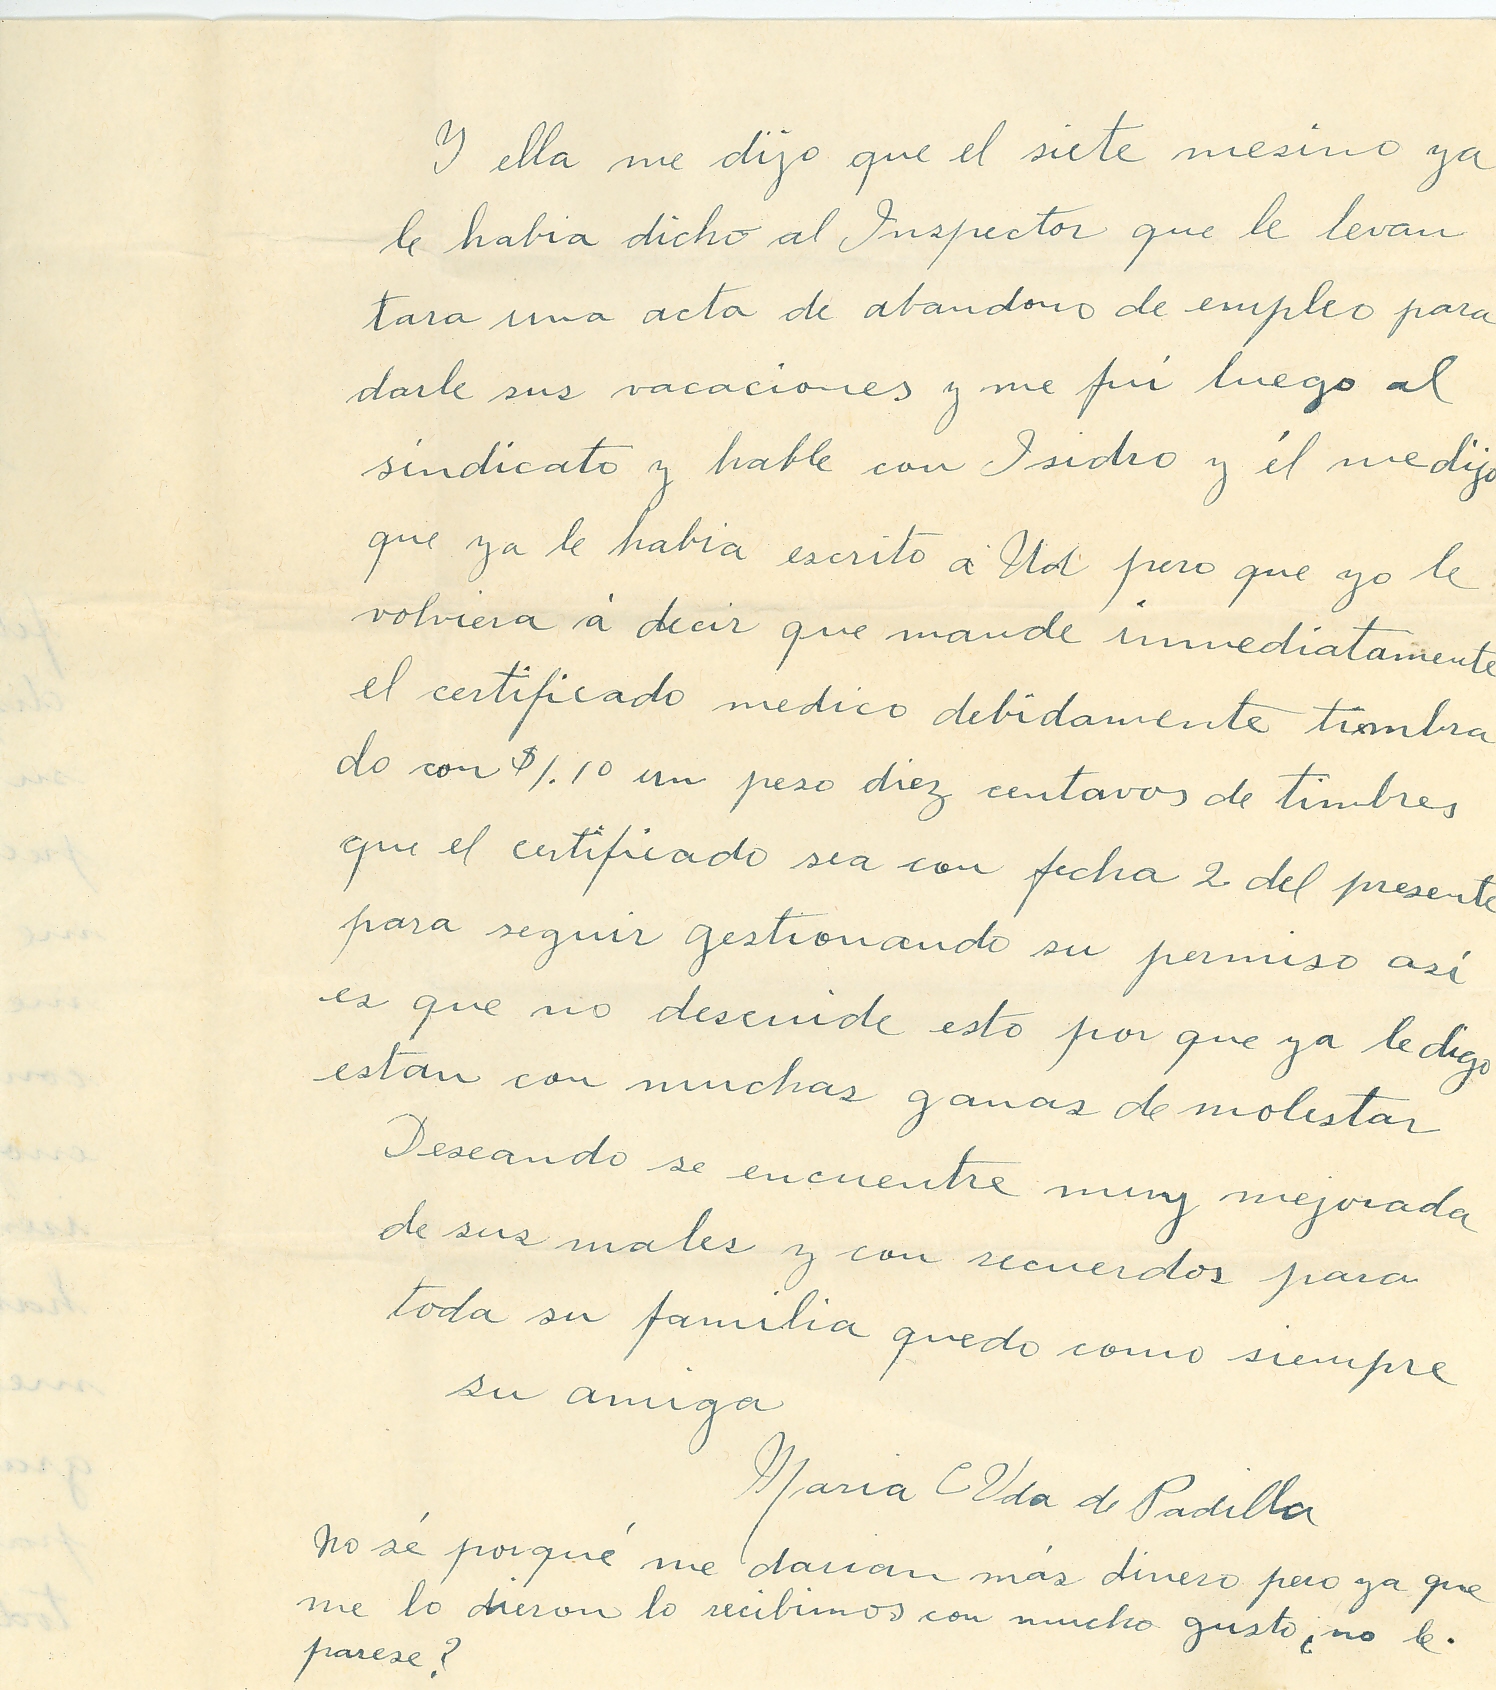 Y ella me dijo que el siete mesino ya
le habia dicho al Inspector que le levan
tara una acta de abandono de empleo para
darle sus vacaciones y me fuí luego al
sindicato y hable con Isidro y él me dijo
que ya le habia escrito a Ud pero que yo le
volviera á decir que mande inmediatamente
el certificado medico debidamente timbra
do con $1.10 un peso diez centavos de timbres
que el certificado sea con fecha 2 del presente
para seguir gestionando su permiso así
es que no descuide esto por que ya le digo
estan con muchas ganas de molestar
Deseando se encuentre muy mejorada
de sus males y con recuerdos para
toda su familia quedo como siempre
su amiga
Maria C Vda de Padilla
No sé porqué me darian más dinero pero ya que
me lo dieron lo recibimos con mucho gusto ¿no le
parese?